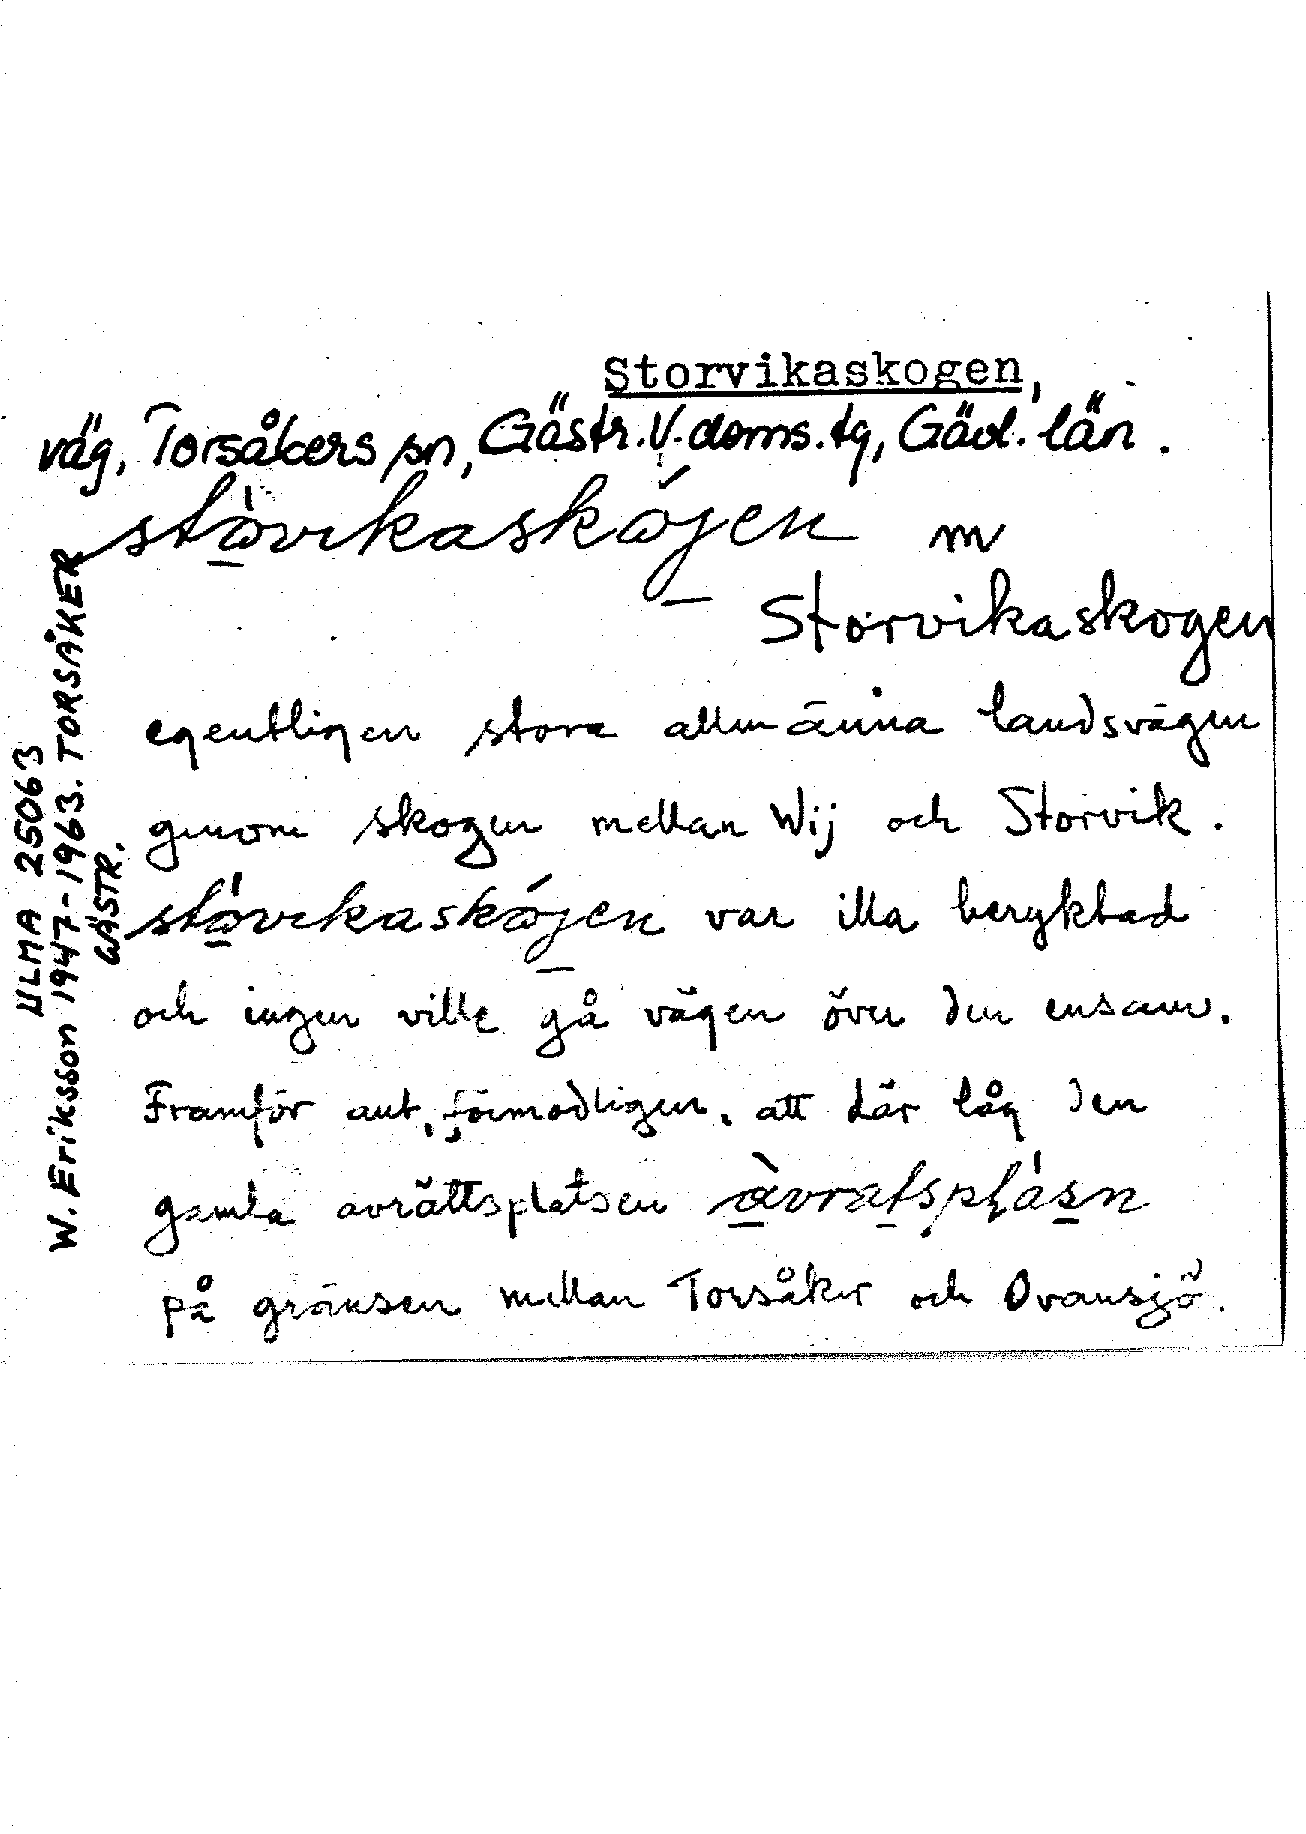 Storvikaskogen,
väg, Torsåkers sn, Gästr. V. doms. tg, Gävl. län.
stòvikaskójen m
Storvikaskogen
egentligen stora allmänna landsvägen
genom skogen mellan Wij och Storvik.
stòvikaskójen var illa beryktad
och ingen ville gå vägen över den ensam.
Framför ant. förmodligen. att där låg den
gamla avrättsplatsen
på gränsen mellan Torsåker och Ovansjö.
ULMA 25063
W. Eriksson 1947-1963. TORSÅKER
GÄSTR.